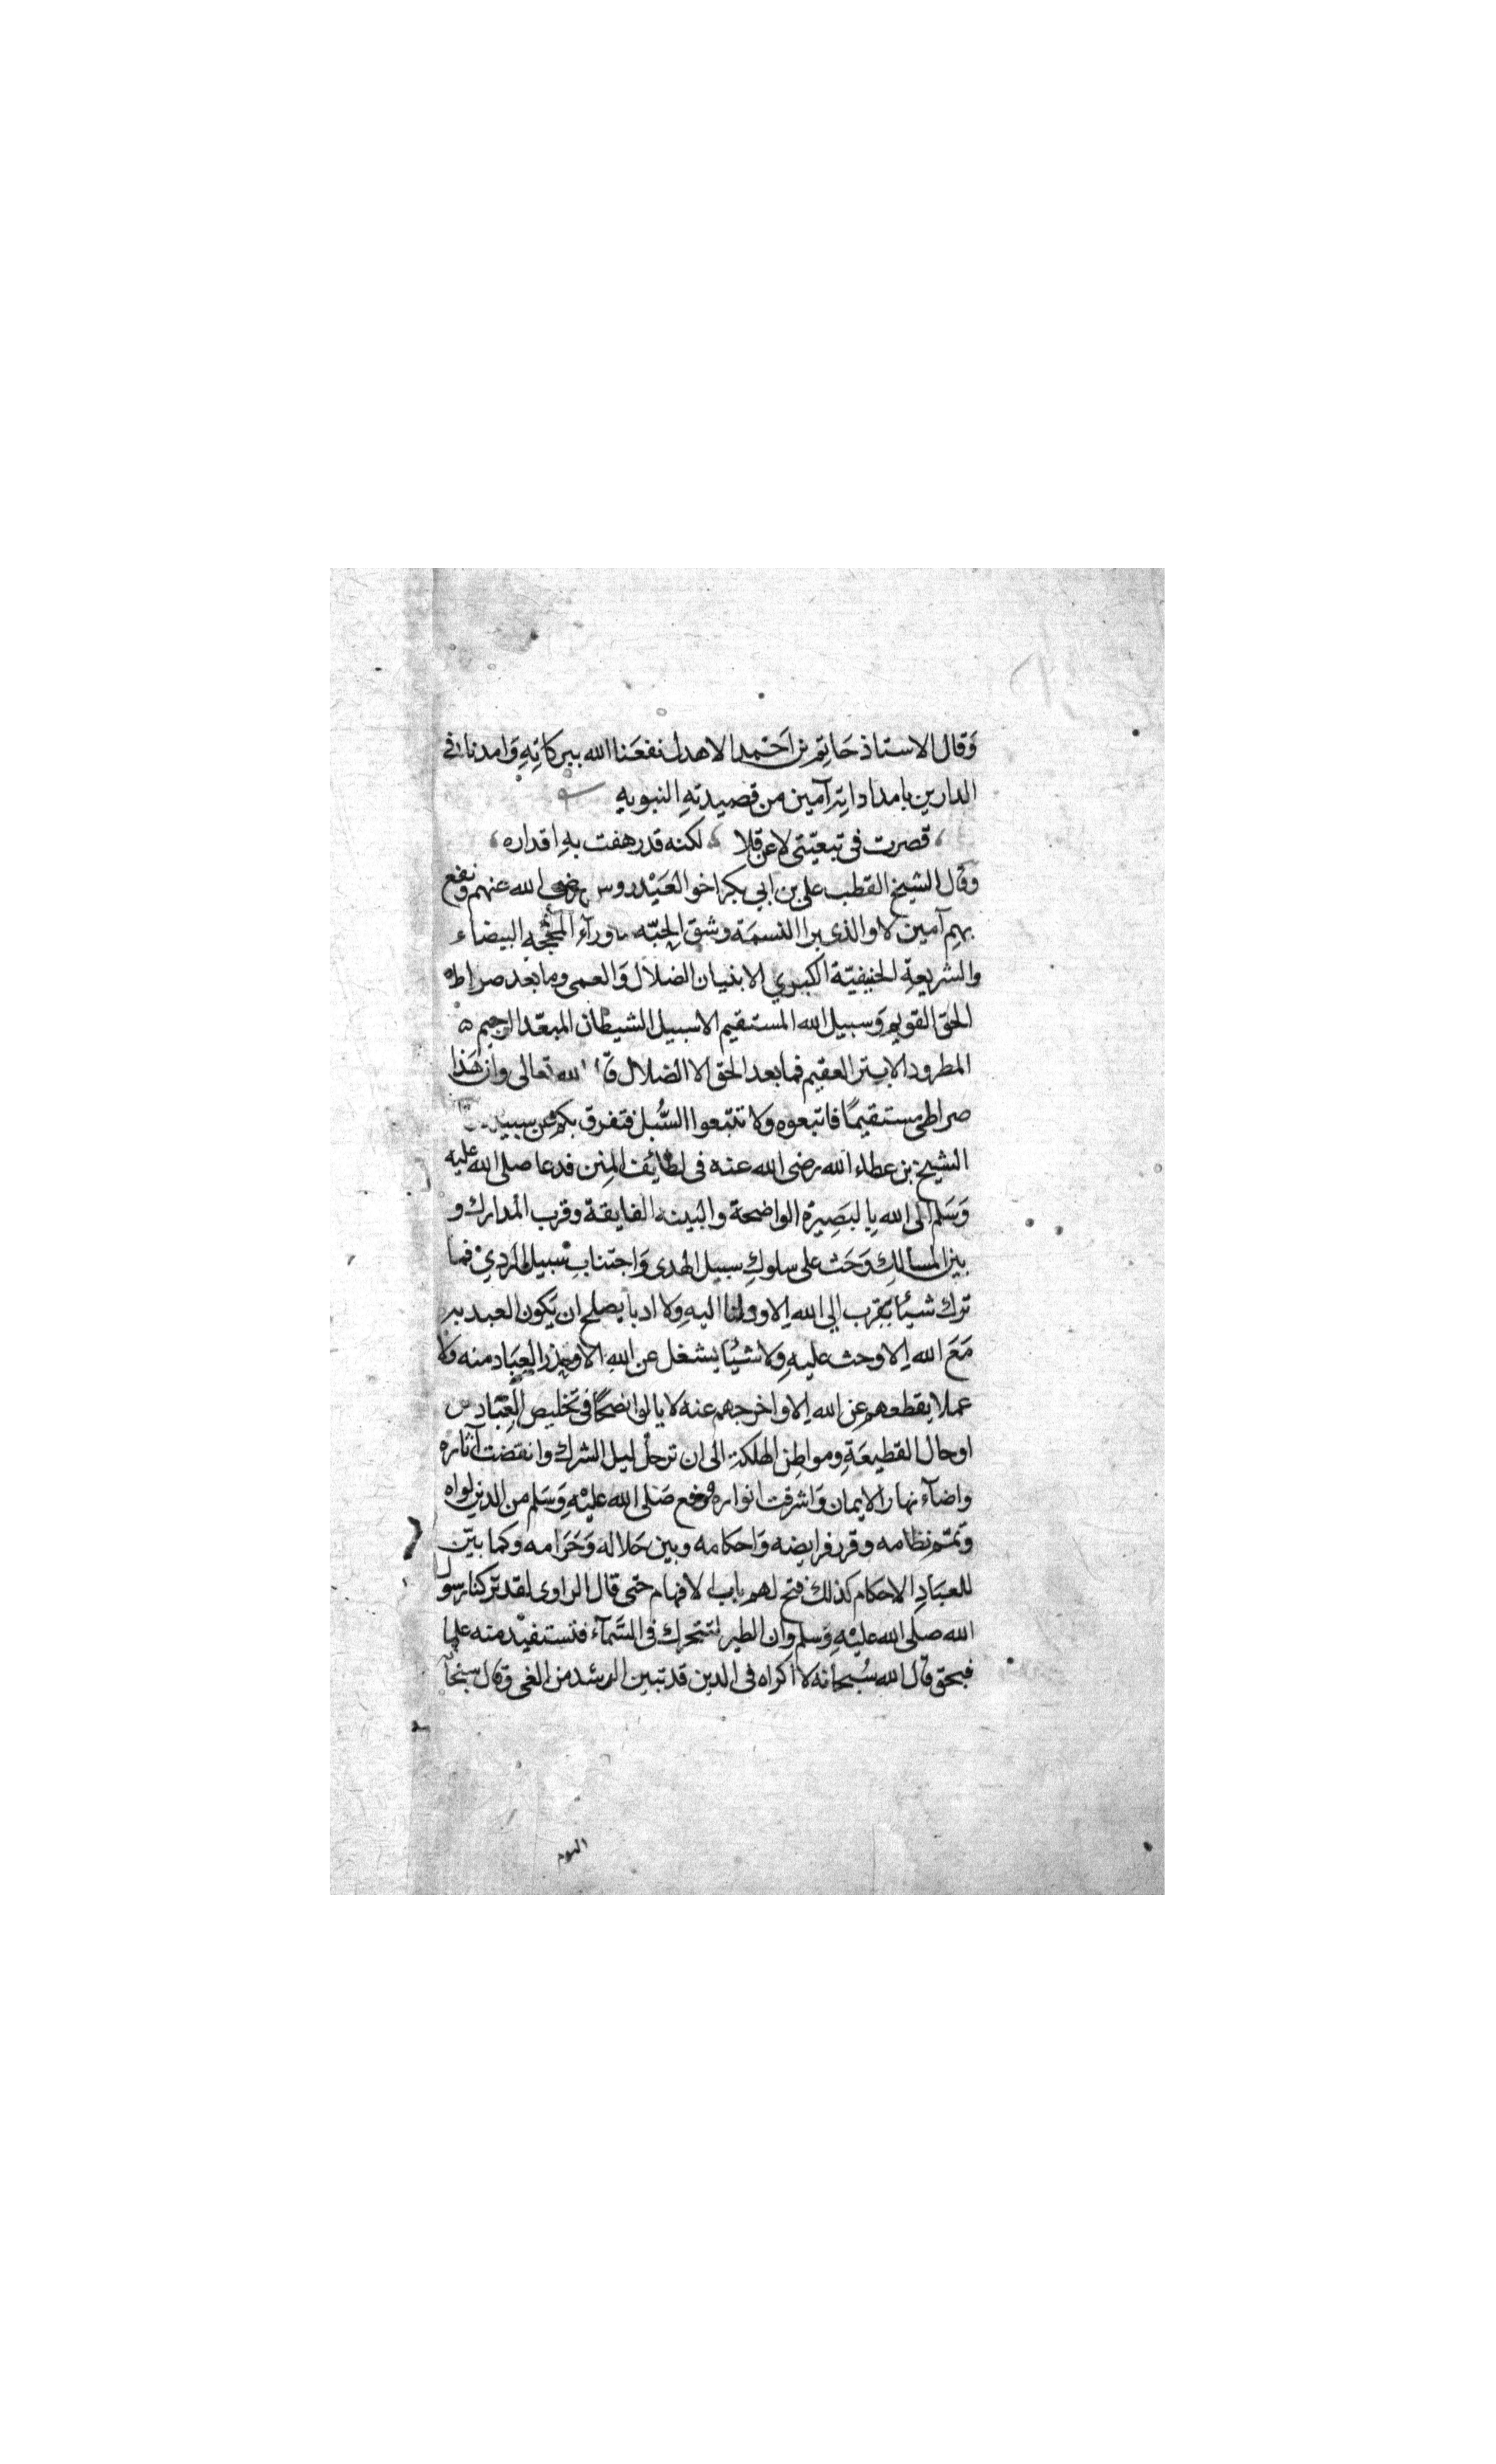 وَقال الاستاذ حَاتِم بن اَحمد الاهدل نفعَنا الله ببركاتِهِ وَامدنا في
الدارين بامداداتِه آمين من قصيدتهِ النبويه
قصرت فى تبعيّتى لا عن قلا لكنه قدر هفت بهِ اقداره
وقال الشيخ القطب على بن ابي بكر اخو العَيْدروس رضى الله عنهم ونفع
بهم آمين لا والذى برا النسمَة وشق الحبّه ما ورآء المحجه البيضاء
والشريعةِ الحنيفيّة الكبرى الا بنيان الضلال وَالعمى وما بعد صراط
الحق القويم وَسبيل الله المستقيم الا سبيل الشيطان المبعّد الرجيم
المطرود الابتر العقيم فما بعد الحق الا الضلال قال الله تعالى وان هَذا
صراطى مستقيمًا فاتبعوه ولا تتبعوا السُّبل فتفرق بكم عن سبيله
الشيخ بن عطاء الله رضى الله عنه فى لطائف المنن فدعا صلى الله عليه
وَسَلم الى الله بِالبَصِيرة الواضحة والبينه الفايقة وقرب المدارك و
بين المسالك وَحَث على سلوكِ سبيل الهدى وَاجتنابِ سبيل الردي فما
ترك شيئًا يقرب الي الله الا ودلنا اليهِ ولا ادبا يصلح ان يكون العبد به
مَعَ الله الا وحث عليهِ ولا شيئًا يشغل عن الله الا وحذر العِبَاد منه ولا
عملا يقطعهم عن الله الا واخرجهم عنه لا يالوا نصحًا فى تخليص العِبَاد من
اوحال القطيعَةِ ومواطن الهلكة الى ان ترحل ليل الشرك وانقضت آثاره
واضآء نهار الايمان وَاشرقت انواره فرفع صَلى الله عليْهِ وَسَلم من الدين لواه
وَتمم نظامه وقرر فرايضه وَاحكامه وبين حَلاله وَحَرَامه وكما بيّن
للعبَادِ الاحكام كذلك فتح لهم باب الافهام حتى قال الراوى لقد تركنا رسول
الله صلى الله عليْهِ وَسلم وان الطير لتتحرك فى السَّمآء فنستفيْد منه علما
فبحق قال الله سُبحانه لا اكراه فى الدين قد تبين الرشد من الغى وقال سبحانه
اليوم